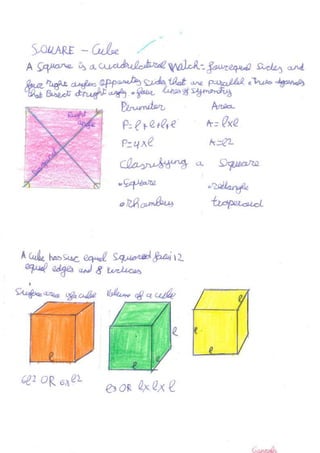 SQUARE - Cube
A Square is a cuadrilateral Watch = four equal Sides and
four right angles opposite sides that are parallel • Two diagonals
that bisect at right angles • four lines of symmetry
Right
angle
Diagonal
Perimeter Area
P=l+l+l+l A=lxl
P=4xl A=l2
Classifying a Square
• Square • rectangle
• rhombus trapezoid
A Cube has six equal Squared faces 12
equal edges and 8 vertices
Surface area of a cube Volume of a cube
l
l
l
l
l
l
l
l3 OR lxlxl